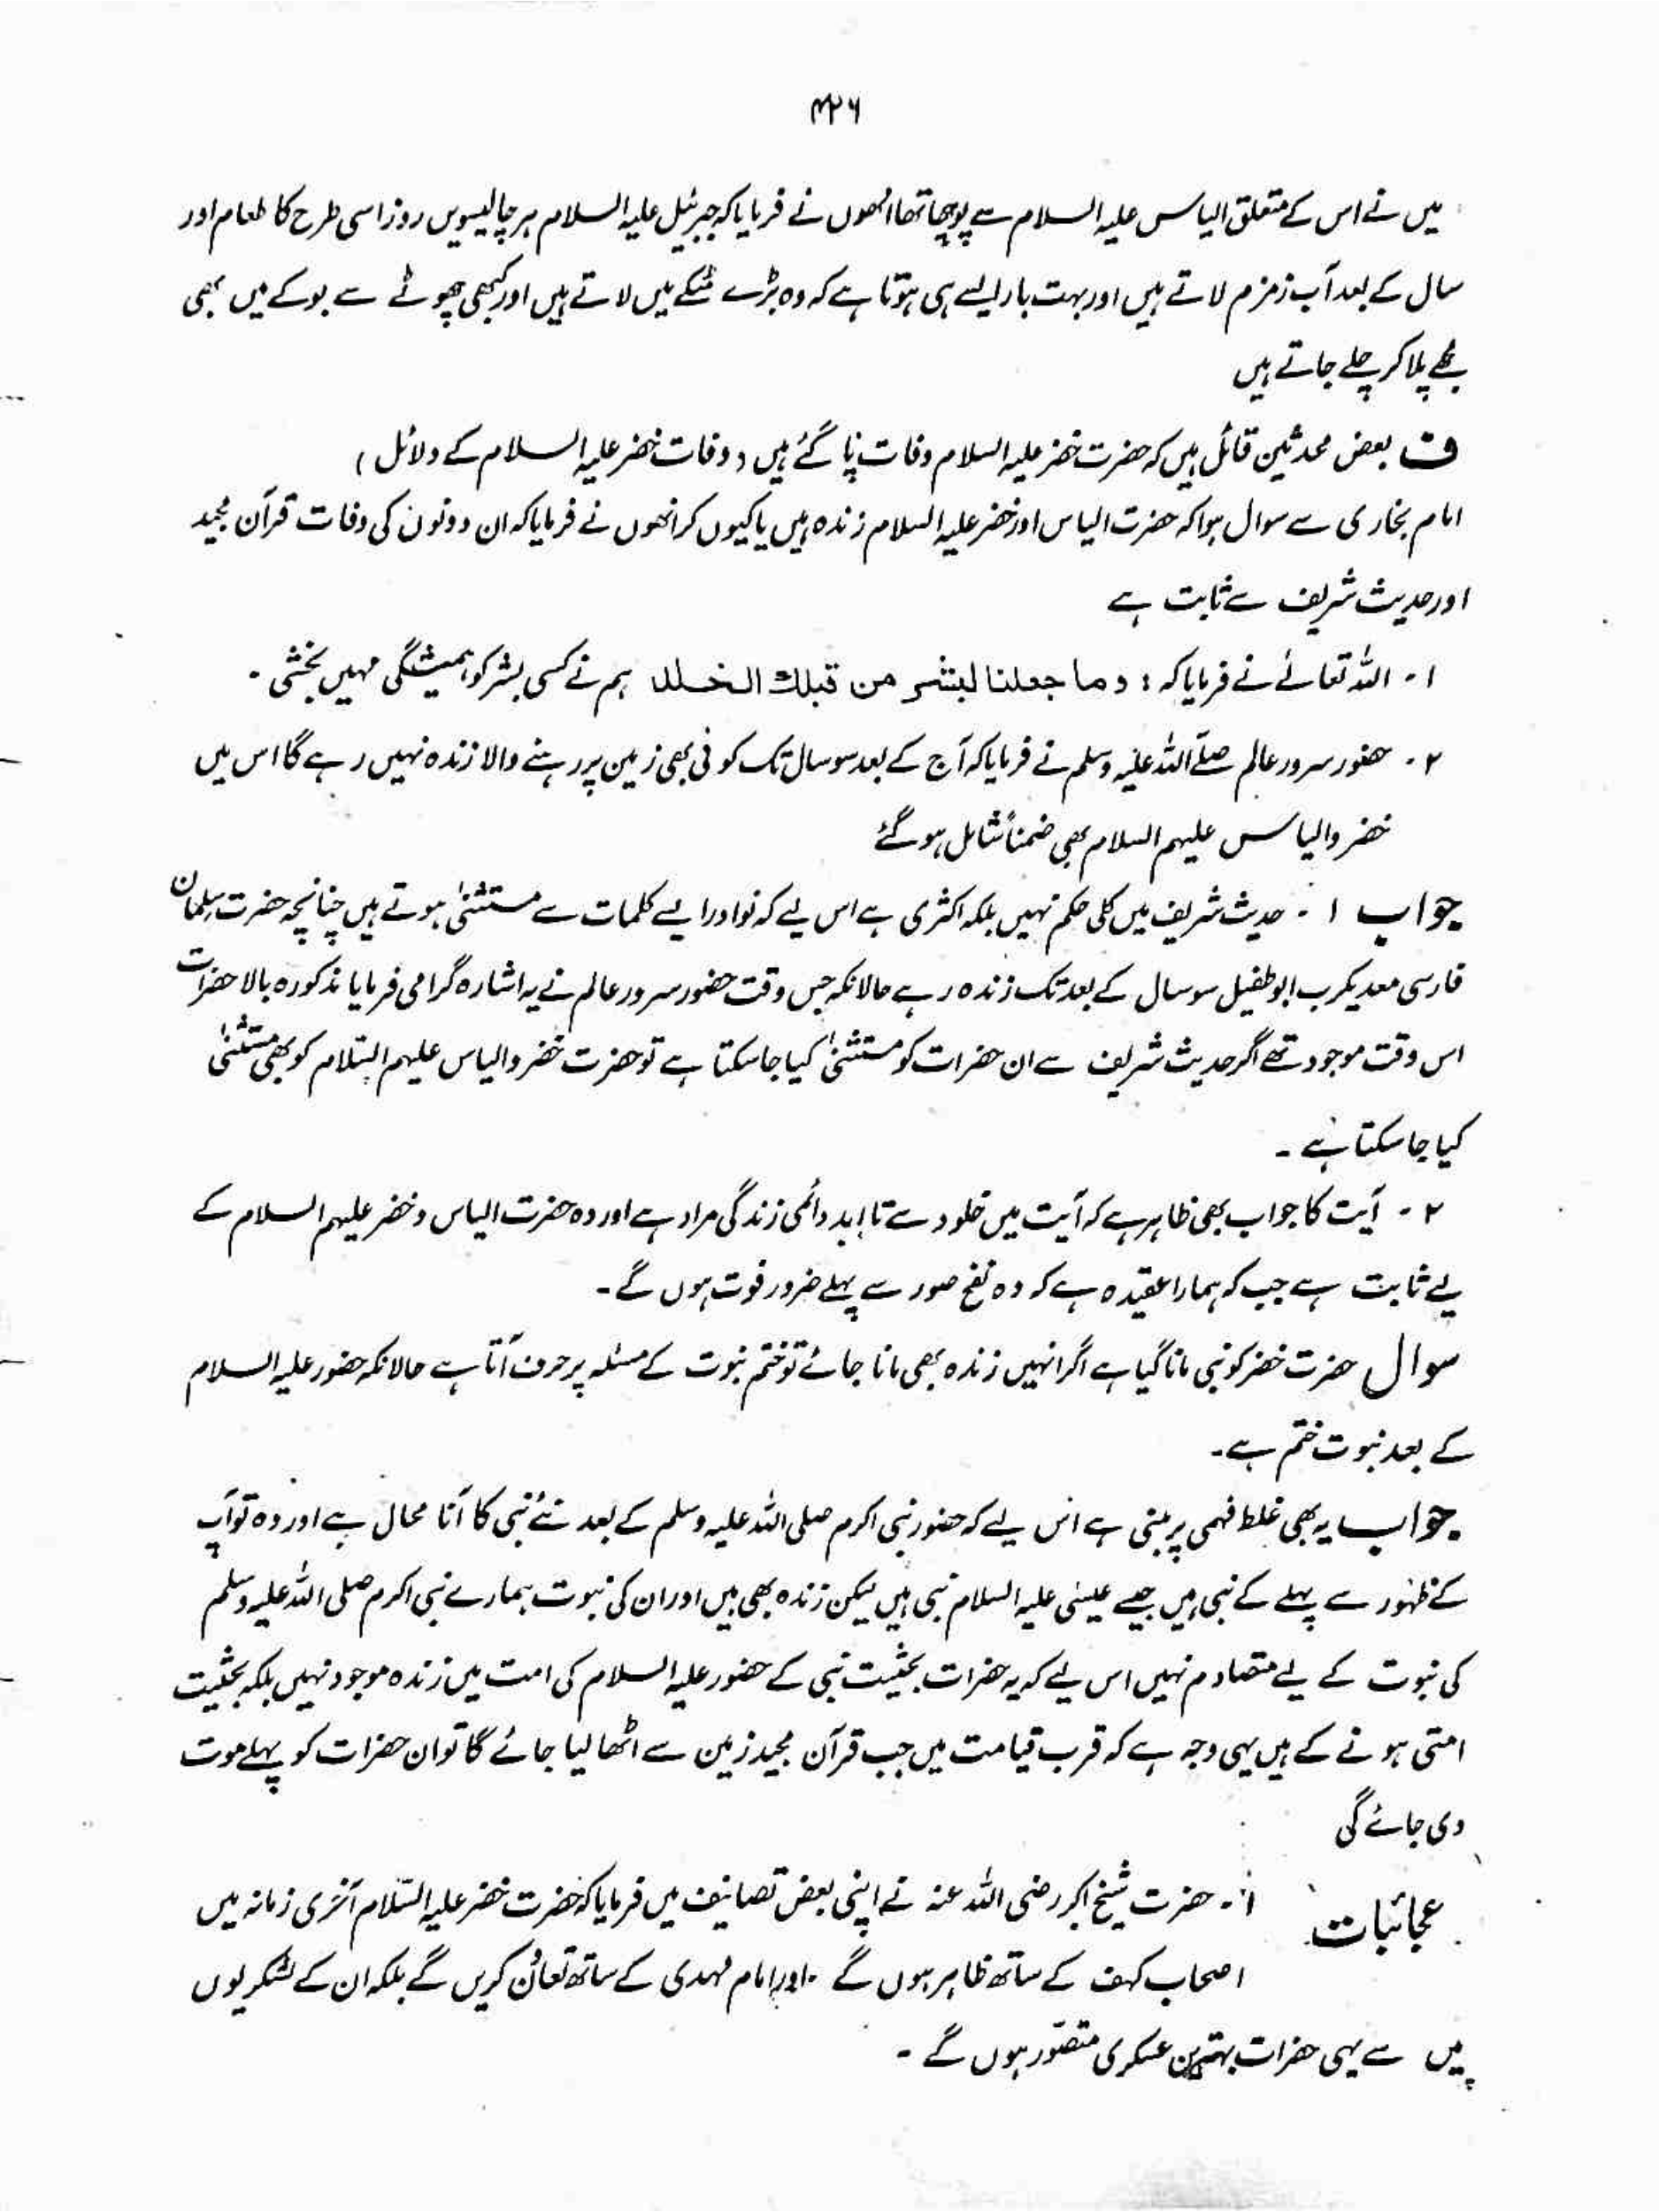 ۴۲۶
میں نے اس کے متعلق الیاس علیہ السلام سے پوچھا تھا انھوں نے فرمایا کہ جبرئیل علیہ السلام ہر چالیسویں روز اسی طرح کا طعام اور
سال کے بعد آب زمزم لاتے ہیں اور بہت بار ایسے ہی ہوتا ہے کہ وہ بڑے مٹکے میں لاتے ہیں اور کبھی چھوٹے سے بوکے میں بھی
مجھے پلا کر چلے جاتے ہیں
ف بعض محدثین قائل ہیں کہ حضرت خضر علیہ السلام وفات پا گئے ہیں (وفات خضر علیہ السلام کے دلائل)
امام بخاری سے سوال ہوا کہ حضرت الیاس اور خضر علیہ السلام زندہ ہیں یا کیوں کر انھوں نے فرمایا کہ ان دونوں کی وفات قرآن مجید
اور حدیث شریف سے ثابت ہے
۱۔ اللہ تعالےٰ نے فرمایا کہ : وما جعلنا لبشر من قبلك الخلد ہم نے کسی بشر کو ہمیشگی نہیں بخشی۔
۲۔ حضور سرور عالم صلے اللہ علیہ وسلم نے فرمایا کہ آج کے بعد سو سال تک کوئی بھی زمین پر رہنے والا زندہ نہیں رہے گا اس میں
خضر و الیاس علیہم السلام بھی ضمناً شامل ہو گئے
جواب ۱۔ حدیث شریف میں کلی حکم نہیں بلکہ اکثری ہے اس لیے کہ نوادر ایسے کلمات سے مستثنیٰ ہوتے ہیں چنانچہ حضرت سلمان
فارسی معدیکرب ابو طفیل سو سال کے بعد تک زندہ رہے حالانکہ جس وقت حضور سرور عالم نے یہ اشارہ گرامی فرمایا مذکورہ بالا حضرات
اس وقت موجود تھے اگر حدیث شریف سے ان حضرات کو مستثنیٰ کیا جا سکتا ہے تو حضرت خضر و الیاس علیہم السّلام کو بھی مستثنیٰ
کیا جا سکتا ہے۔
۲۔ آیت کا جواب بھی ظاہر ہے کہ آیت میں خلود سے تا ابد دائمی زندگی مراد ہے اور وہ حضرت الیاس و خضر علیہم السلام کے
لیے ثابت ہے جب کہ ہمارا عقیدہ ہے کہ وہ نفخ صور سے پہلے ضرور فوت ہوں گے۔
سوال حضرت خضر کو نبی مانا گیا ہے اگر انہیں زندہ بھی مانا جائے تو ختم نبوت کے مسئلہ پر حرف آتا ہے حالانکہ حضور علیہ السلام
کے بعد نبوت ختم ہے۔
جواب یہ بھی غلط فہمی پر مبنی ہے اس لیے کہ حضور نبی اکرم صلی اللہ علیہ وسلم کے بعد نئے نبی کا آنا محال ہے اور وہ تو آپ
کے ظہور سے پہلے کے نبی ہیں جیسے عیسٰی علیہ السلام نبی ہیں لیکن زندہ بھی ہیں اور ان کی نبوت ہمارے نبی اکرم صلی اللہ علیہ وسلم
کی نبوت کے لیے متصادم نہیں اس لیے کہ یہ حضرات بحثیت نبی کے حضور علیہ السلام کی امت میں زندہ موجود نہیں بلکہ بحثیت
امتی ہونے کے ہیں یہی وجہ ہے کہ قرب قیامت میں جب قرآن مجید زمین سے اٹھا لیا جائے گا تو ان حضرات کو پہلے موت
دی جائے گی
عجائبات ۱۔ حضرت شیخ اکبر رضی اللہ عنہ نے اپنی بعض تصانیف میں فرمایا کہ حضرت خضر علیہ السّلام آخری زمانہ میں
اصحاب کہف کے ساتھ ظاہر ہوں گے ۔ اور امام مہدی کے ساتھ تعاون کریں گے بلکہ ان کے لشکریوں
میں سے یہی حضرات بہترین عسکری متصوّر ہوں گے ۔